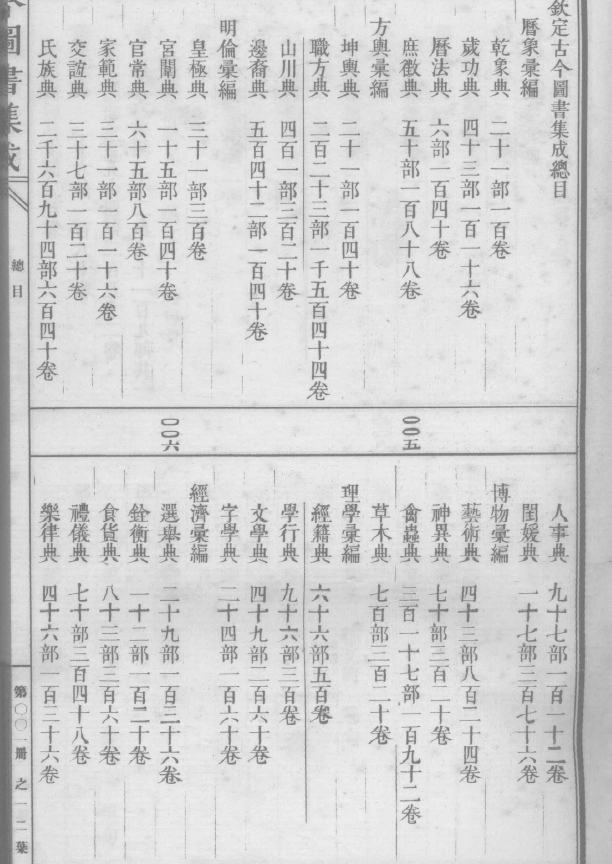 欽定古今圖書集成總目
曆象彙編
乾象典 二十一部一百卷
歲功典 四十三部一百一十六卷
曆法典 六部一百四十卷
庶徵典 五十部一百八十八卷
方輿彙編
坤輿典 二十一部一百四十卷
職方典 二百二十三部一千五百四十四卷
山川典 四百一部三百二十卷
邊裔典 五百四十二部一百四十卷
明倫彙編
皇極典 三十一部三百卷
宮闈典 一十五部一百四十卷
官常典 六十五部八百卷
家範典 三十一部一百一十六卷
交誼典 三十七部一百二十卷
氏族典 二千六百九十四部六百四十卷
〇〇五
〇〇六
人事典 九十七部一百一十二卷
閨媛典 一十七部三百七十六卷
博物彙編
藝術典 四十三部八百二十四卷
神異典 七十部三百二十卷
禽蟲典 三百一十七部一百九十二卷
草木典 七百部三百二十卷
理學彙編
經籍典 六十六部五百卷
學行典 九十六部三百卷
文學典 四十九部二百六十卷
字學典 二十四部一百六十卷
經濟彙編
選舉典 二十九部一百三十六卷
銓衡典 一十二部一百二十卷
食貨典 八十三部三百六十卷
禮儀典 七十部三百四十八卷
樂律典 四十六部一百三十六卷
圖書集成
總目
第〇〇一冊 之一二葉